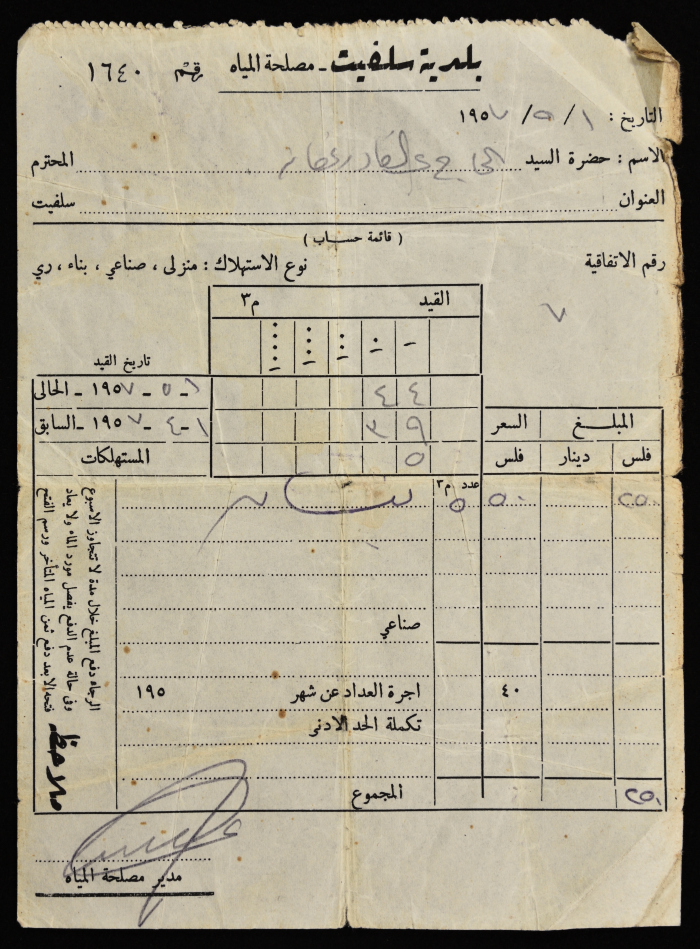 بلدية سلفيت - مصلحة المياه رقم ١٦٤٠
التاريخ : ١ / ٥ / ١٩٥٧
الاسم : حضرة السيد الحاج عبد القادر المحترم
العنوان سلفيت
( قائمة حساب )
رقم الاتفاقية نوع الاستهلاك : منزلى ، صناعي ، بناء ، ري
٧
القيد م٣
تاريخ القيد
١ - ٥ - ١٩٥٧ - الحالى ٤٤
١ - ٤ - ١٩٥٧ - السابق ٣٩
المستهلكات ٥
المبلغ السعر
فلس دينار فلس
عدد م٣
٢٥٠ ٥٠ ٥
صناعي
اجرة العداد عن شهر ١٩٥ ٤٠
تكملة الحد الادنى
المجموع ٢٥٠
ملاحظة
الرجاء دفع المبلغ خلال مدة لا تتجاوز الاسبوع
وفى حالة عدم الدفع يفصل مورد الماء ولا يعاد
فتحه الا بعد دفع ثمن المياه المتأخر ورسم الفتح
مدير مصلحة المياه